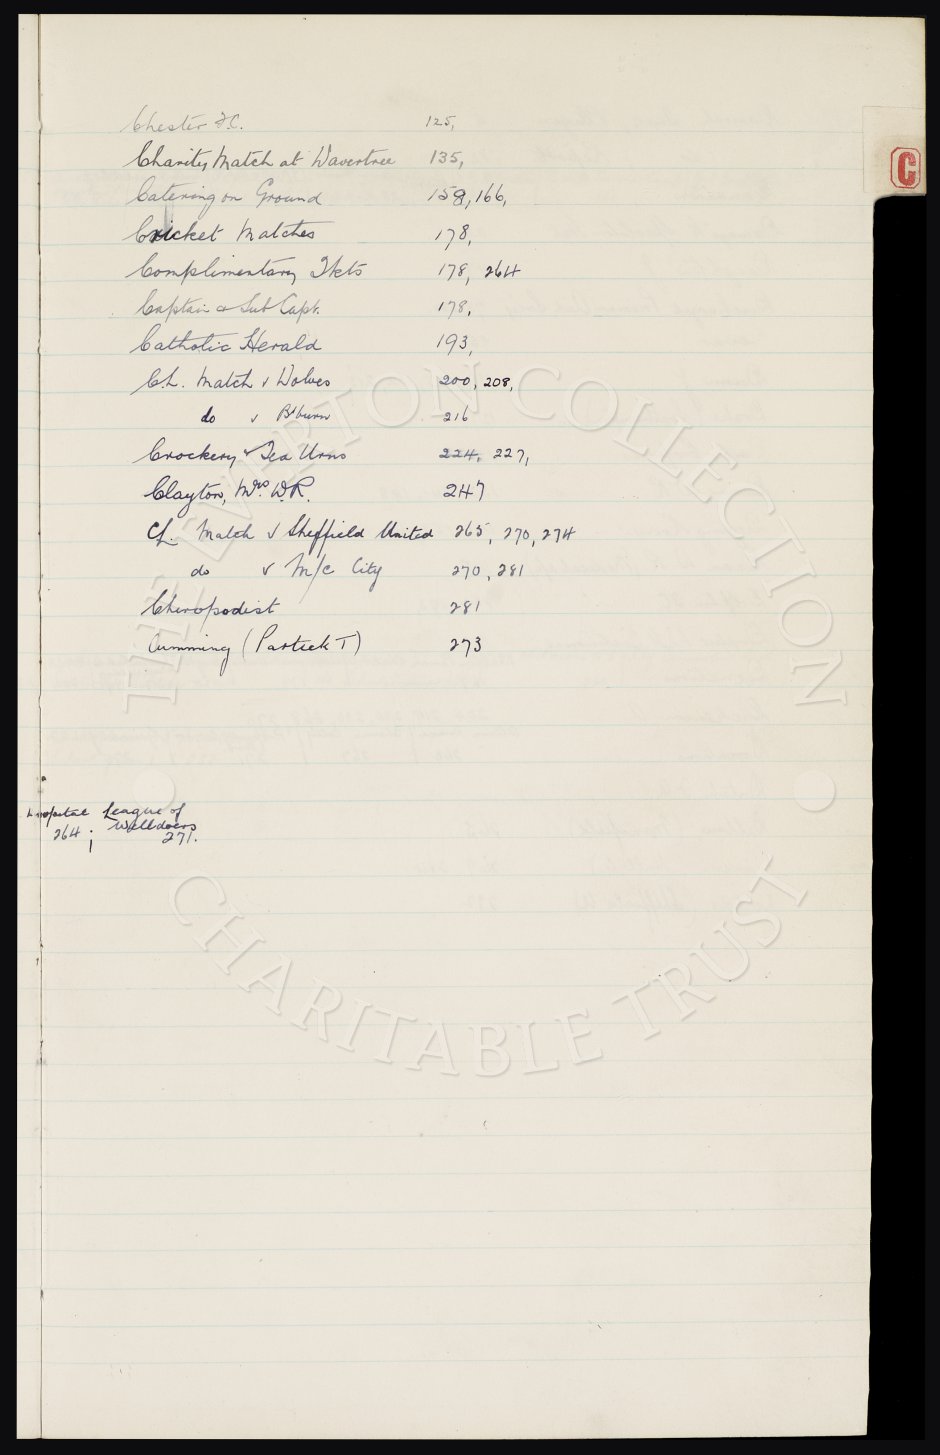 C
Chester F.C. 125,
Charity Match at Wavertree 135,
Catering on Ground 158, 166,
Cricket Matches 178,
Complimentary Tkts 178, 264
Captain & Sub Capt. 178,
Catholic Herald 193,
Ch. Match v Wolves 200, 208,
do v B'burn 216
Crockery & Tea Urns 224, 227,
Clayton, Mrs. W.R. 247
Ch. Match v Sheffield United 265, 270, 274
do v M/c City 270, 281
Chiropodist 281
Cumming (Partick T) 273
League of
264; Welldoers
271.
THE EVERTON COLLECTION
CHARITABLE TRUST